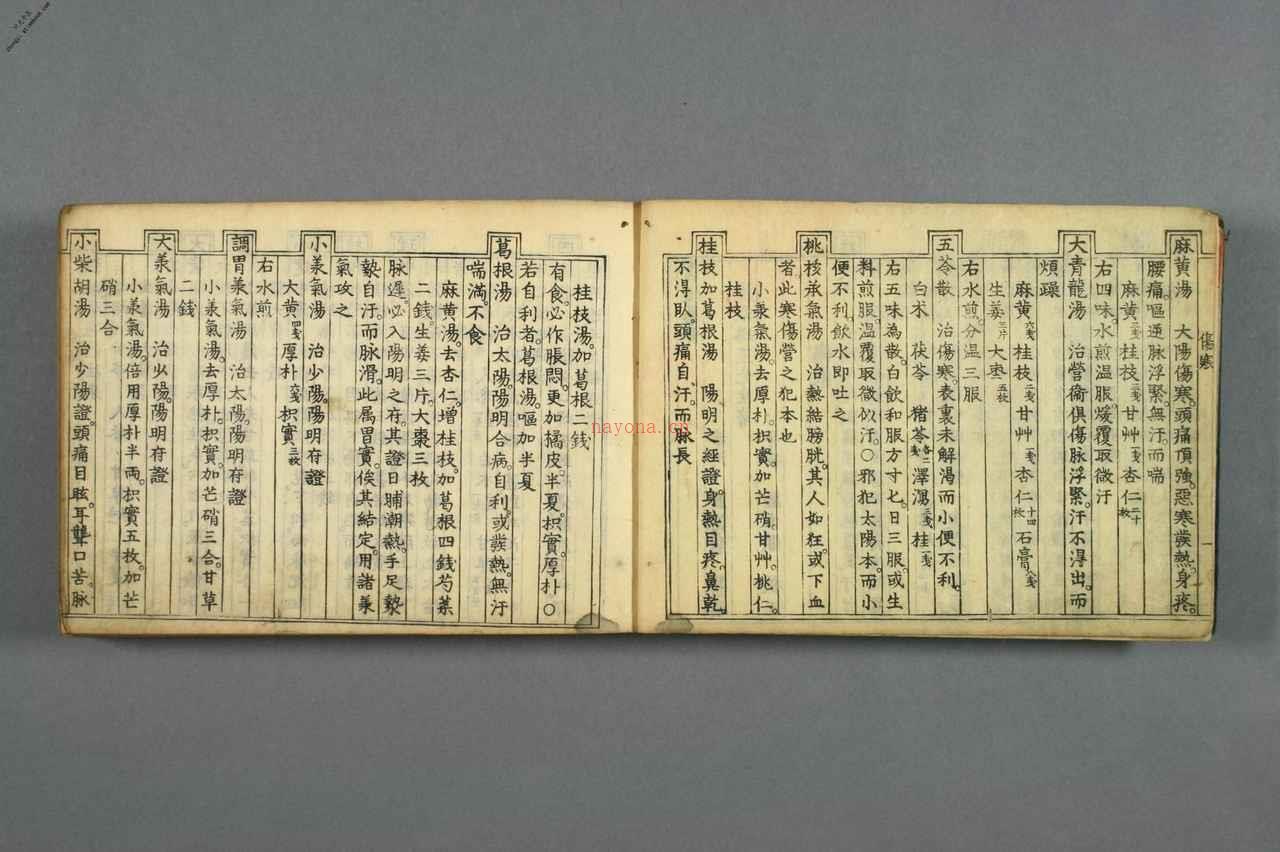 傷寒
一
麻黃湯　大陽傷寒。頭痛頂強。惡寒發熱。身疼。
腰痛。嘔逆脉浮緊。無汗而喘
麻黃三戔桂枝二戔甘艸一戔杏仁二十枚
右四味。水煎温服。煖覆取微汗
大青龍湯　治營衞俱傷脉浮緊。汗不得出。而
煩躁
麻黃六戔桂枝二戔甘艸二戔杏仁十四枚石膏八戔
生姜三片大枣五枚
右水煎。分温三服
五苓散　治傷寒。表裏未解渴而小便不利。
白术　茯苓　猪苓各二戔澤瀉三戔桂一戔
右五味為散。白飲和服方寸匕。日三服或生
料煎服温覆取微似汗。〇邪犯太陽本。而小
便不利。飲水即吐之
桃核承氣湯　治熱結膀胱。其人如狂。或下血
者此寒傷營之犯本也
小䒱氣湯。去厚朴。枳實。加芒硝。甘艸。桃仁。
桂枝
桂枝加葛根湯　陽明之經證。身熱目疼。鼻乾
不得臥頭痛自汗。而脉長
桂枝湯。加葛根二錢
有食。必作脹悶。更加橘皮。半夏。枳實。厚朴〇
若自利者。葛根湯。嘔加半夏
葛根湯　治太陽。陽明合病。自利。或發熱。無汗
喘滿。不食
麻黃湯。去杏仁。增桂枝。加葛根四錢芍藥
二錢。生姜三片。大棗三枚
脉遲。必入陽明之府。其證日晡潮熱。手足漐
漐自汗。而脉滑。此属胃實。俟其結定。用諸䒱
氣攻之
小䒱氣湯　治少陽。陽明府證
大黃四戔厚朴六戔枳實三枚
右水煎
調胃䒱氣湯　治太陽。陽明府證
小䒱氣湯。去厚朴。枳實。加芒硝三合。甘草
二錢
大䒱氣湯　治少陽。陽明府證
小䒱氣湯。倍用厚朴半兩。枳實五枚。加芒
硝三合
小柴胡湯　治少陽證。頭痛目眩。耳聾口苦。脉
nayona.cn